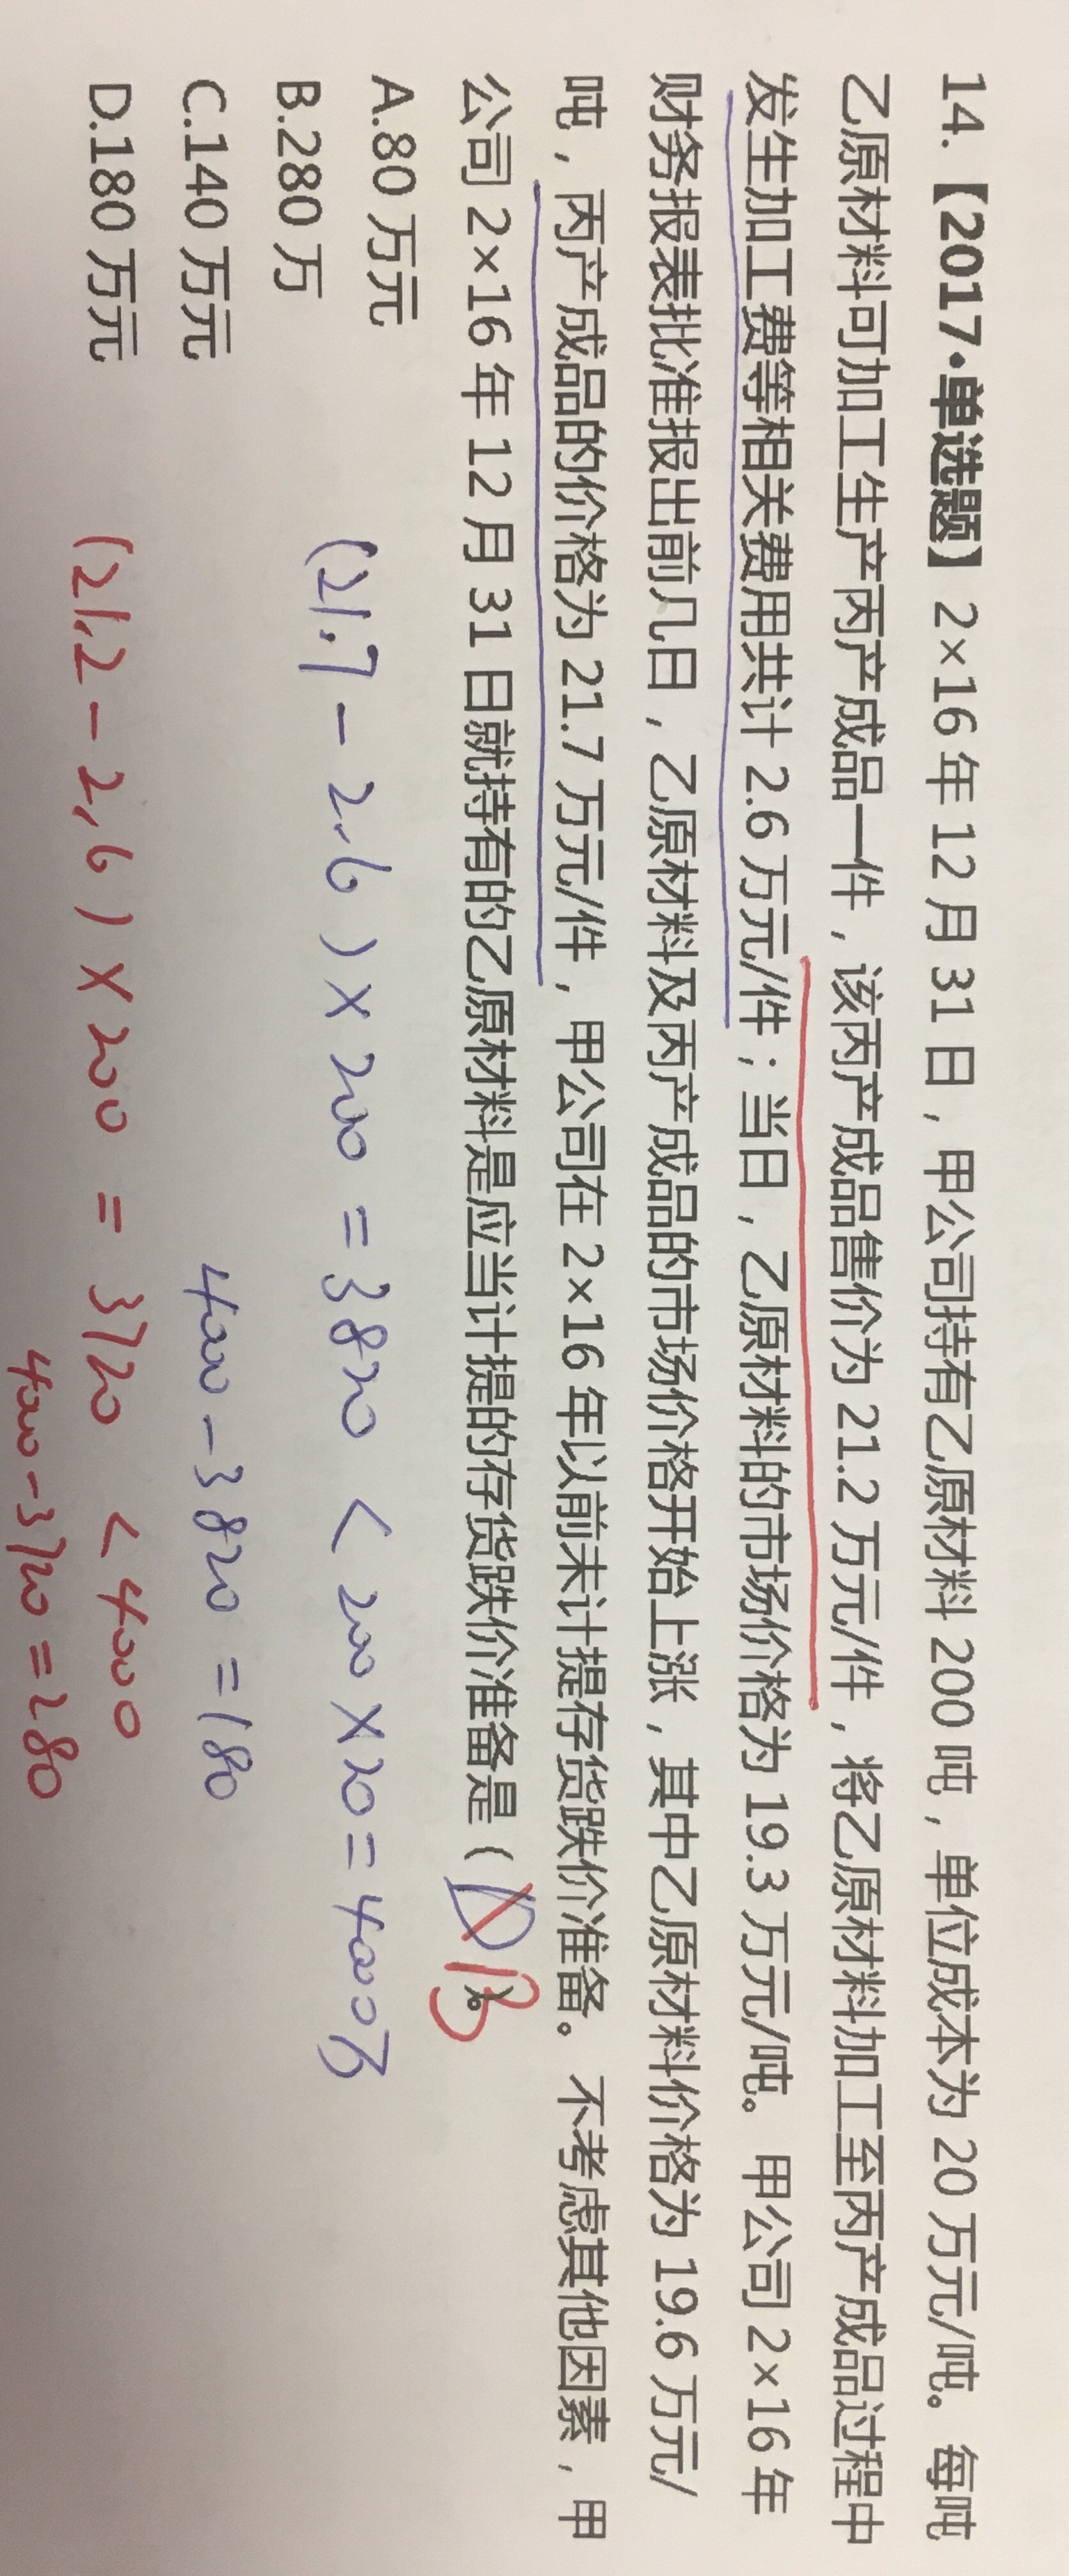 14.【2017•单选题】2×16 年 12 月 31 日，甲公司持有乙原材料 200 吨，单位成本为 20 万元/吨。每吨
乙原材料可加工生产丙产成品一件，该丙产成品售价为 21.2 万元/件，将乙原材料加工至丙产成品过程中
发生加工费等相关费用共计 2.6 万元/件；当日，乙原材料的市场价格为 19.3 万元/吨。甲公司 2×16 年
财务报表批准报出前几日，乙原材料及丙产成品的市场价格开始上涨，其中乙原材料价格为 19.6 万元/
吨，丙产成品的价格为 21.7 万元/件，甲公司在 2×16 年以前未计提存货跌价准备。不考虑其他因素，甲
公司 2×16 年 12 月 31 日就持有的乙原材料是应当计提的存货跌价准备是（D B）。
A.80 万元
B.280 万
C.140 万元
D.180 万元
(21.7 - 2.6) × 200 = 3820 < 200 × 20 = 4000万
4000 - 3820 = 180
(21.2 - 2.6) × 200 = 3720 < 4000
4000 - 3720 = 280